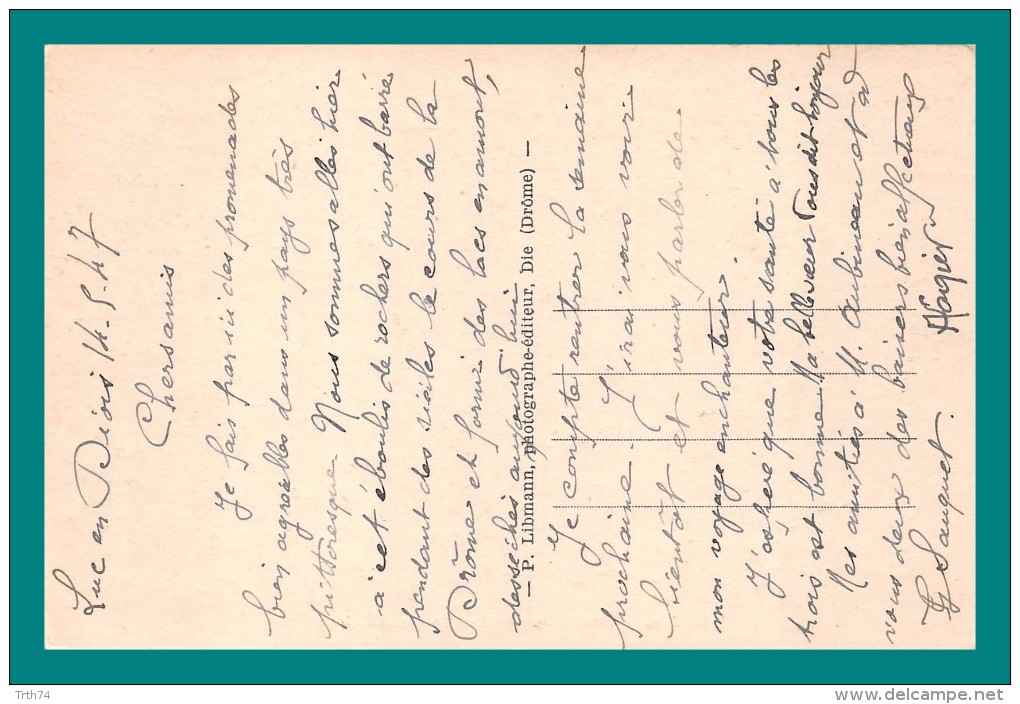 Luc en Diois 14-5-47
Chers amis
Je fais par ici des promenades
bien agréables dans un pays très
pittoresque. Nous sommes allés hier
à cet éboulis de rochers qui ont barré
pendant des siècles le cours de la
Drôme et formé des lacs en amont,
desséchés aujourd'hui
— P. Libmann, photographe-éditeur, Die (Drôme) —
Je compte rentrer la semaine
prochaine. J'irai vous voir
bientôt et vous parler de
mon voyage enchanteur.
J'espère que votre santé à tous les
trois est bonne. Ma belle sœur vous dit bonjour
Mes amitiés à M. Aubineau et à
vous deux des baisers bien affectueux
G Sauquet.
Trth74
www.delcampe.net